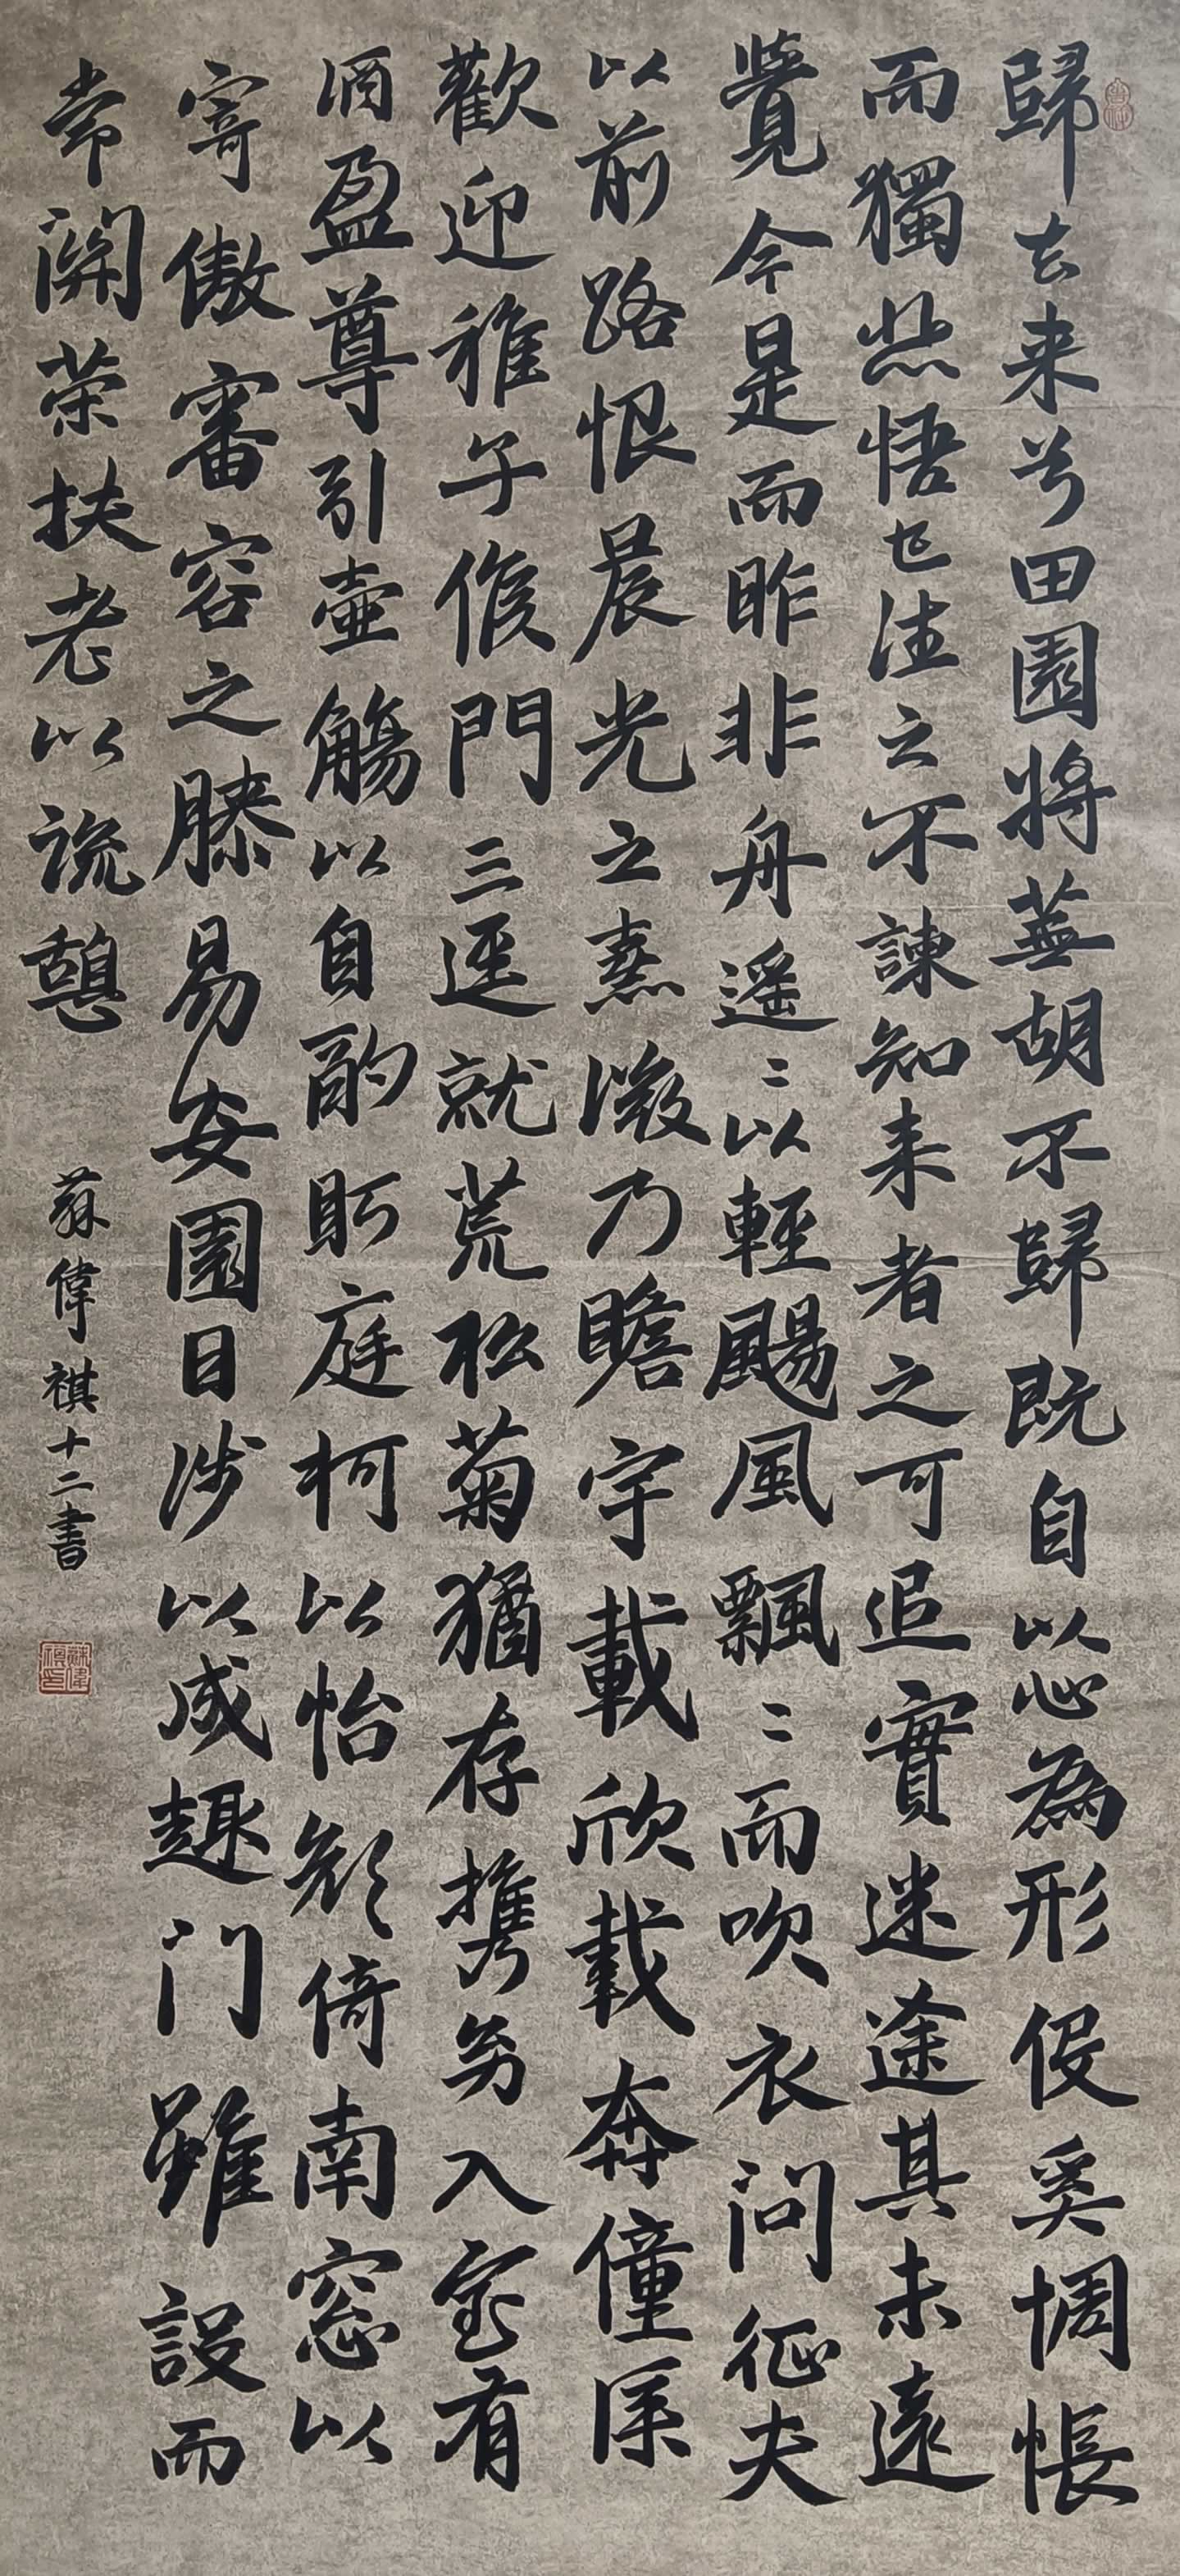 歸去来兮田園將蕪胡不歸既自以心為形役奚惆悵
而獨悲悟已往之不諫知来者之可追實迷途其未遠
覺今是而昨非舟遥〻以輕颺風飄〻而吹衣问征夫
以前路恨晨光之熹微乃瞻宇載欣載奔僮僕
歡迎稚子候門三逕就荒松菊猶存携幼入室有
酒盈尊引壺觴以自酌眄庭柯以怡顔倚南窓以
寄傲審容之膝易安園日涉以成趣门雖設而
常関策扶老以流憩
蘇偉祺十二書
蘇偉祺印